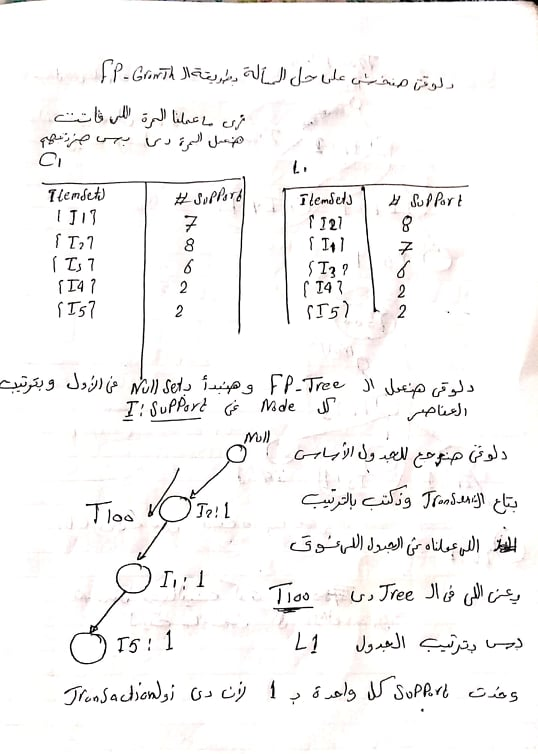 دلوقتى هنمشى على حل المسألة بطريقة الـ FP-Growth
زى ما عملنا المرة اللى فاتت
هنعمل المرة دى بس هنرتبهم
C1
L1
Itemsets | # Support
{I1} | 7
{I2} | 8
{I3} | 6
{I4} | 2
{I5} | 2
Itemsets | # Support
{I2} | 8
{I1} | 7
{I3} | 6
{I4} | 2
{I5} | 2
دلوقتى هنعمل الـ FP-Tree وهنبدأ بـ Null Sets فى الأول وبترتيب
العناصر كل Node فى I: Support
Null
I2:1
T100
I1: 1
I5: 1
دلوقتى هنرجع للجدول الأساسى
بتاع الـ Transaction ونكتب بالترتيب
اللى عملناه فى الجدول اللى فوق
يعنى اللى فى الـ Tree دى T100
بس بترتيب الجدول L1
وخدت Support كل واحدة بـ 1 لأن دى أول Transaction